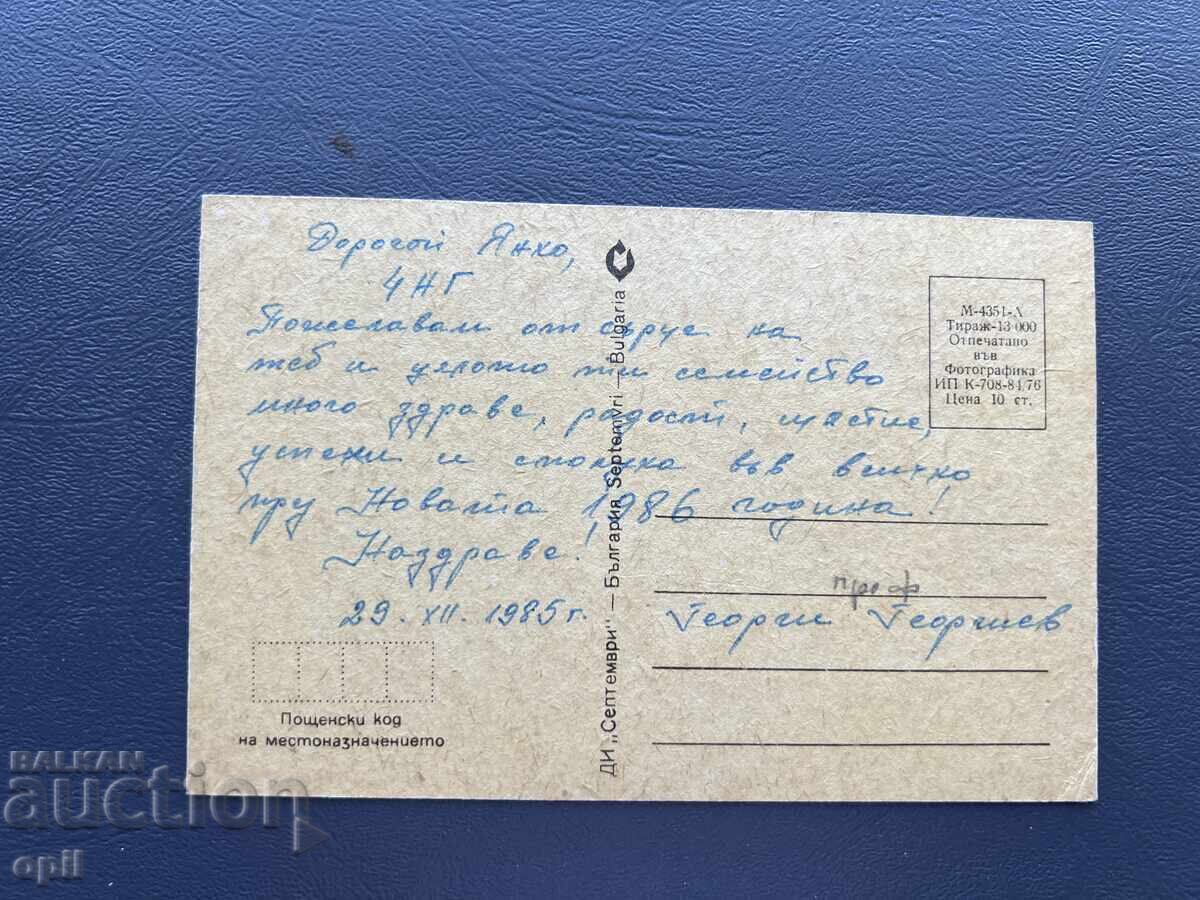 Дорогой Янко,
ЧНГ
Пожелавам от сърце на
теб и цялото ти семейство
много здраве, радости, щастие,
успехи и сполука във всичко
през Новата 1986 година!
Наздраве!
29. XII. 1985 г.
Пощенски код
на местоназначението
ДИ „Септември" — България Septemvri — Bulgaria
М-4351-А
Тираж-13 000
Отпечатано
във
Фотографика
ИП К-708-84/76
Цена 10 ст.
проф
Георги Георгиев
BALKAN
auction
opil